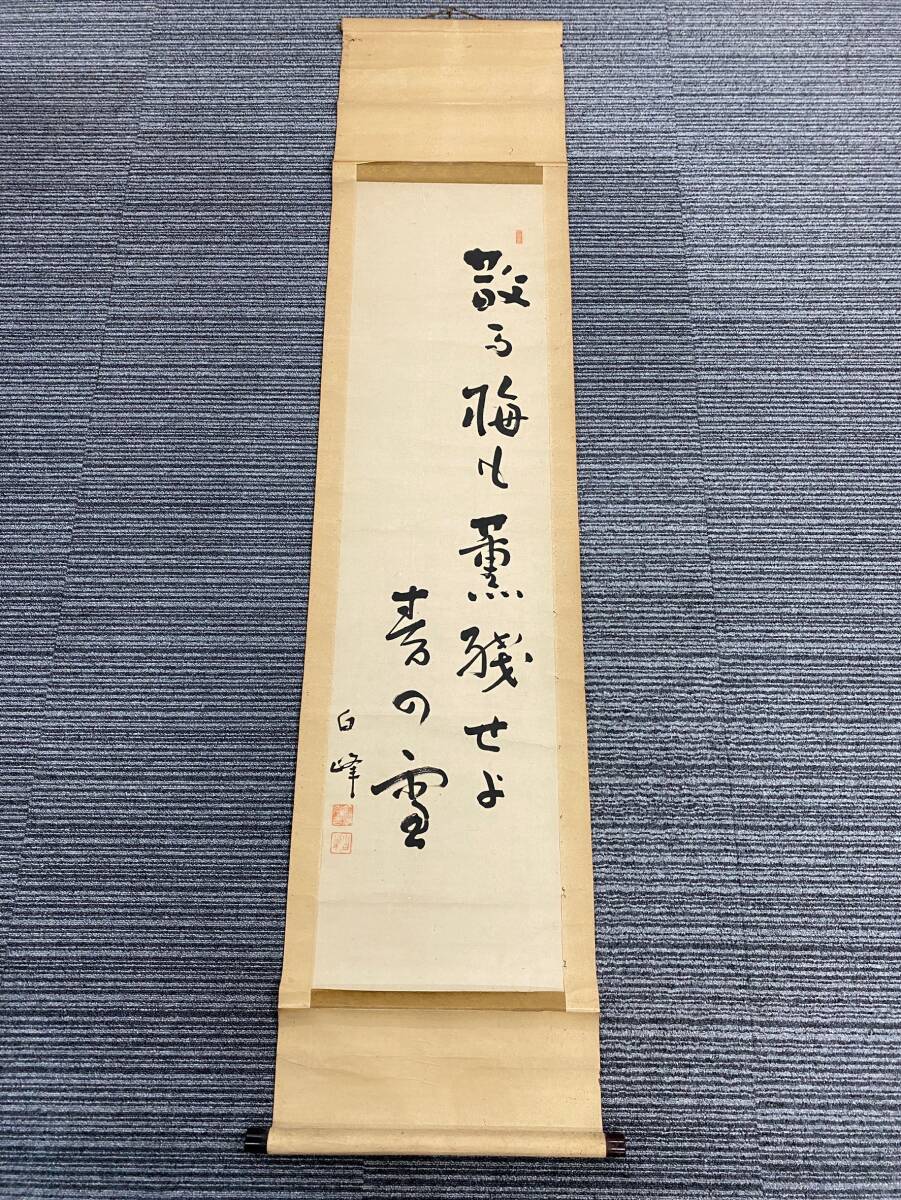 散る梅も薫残せよ
春の雪
白峰